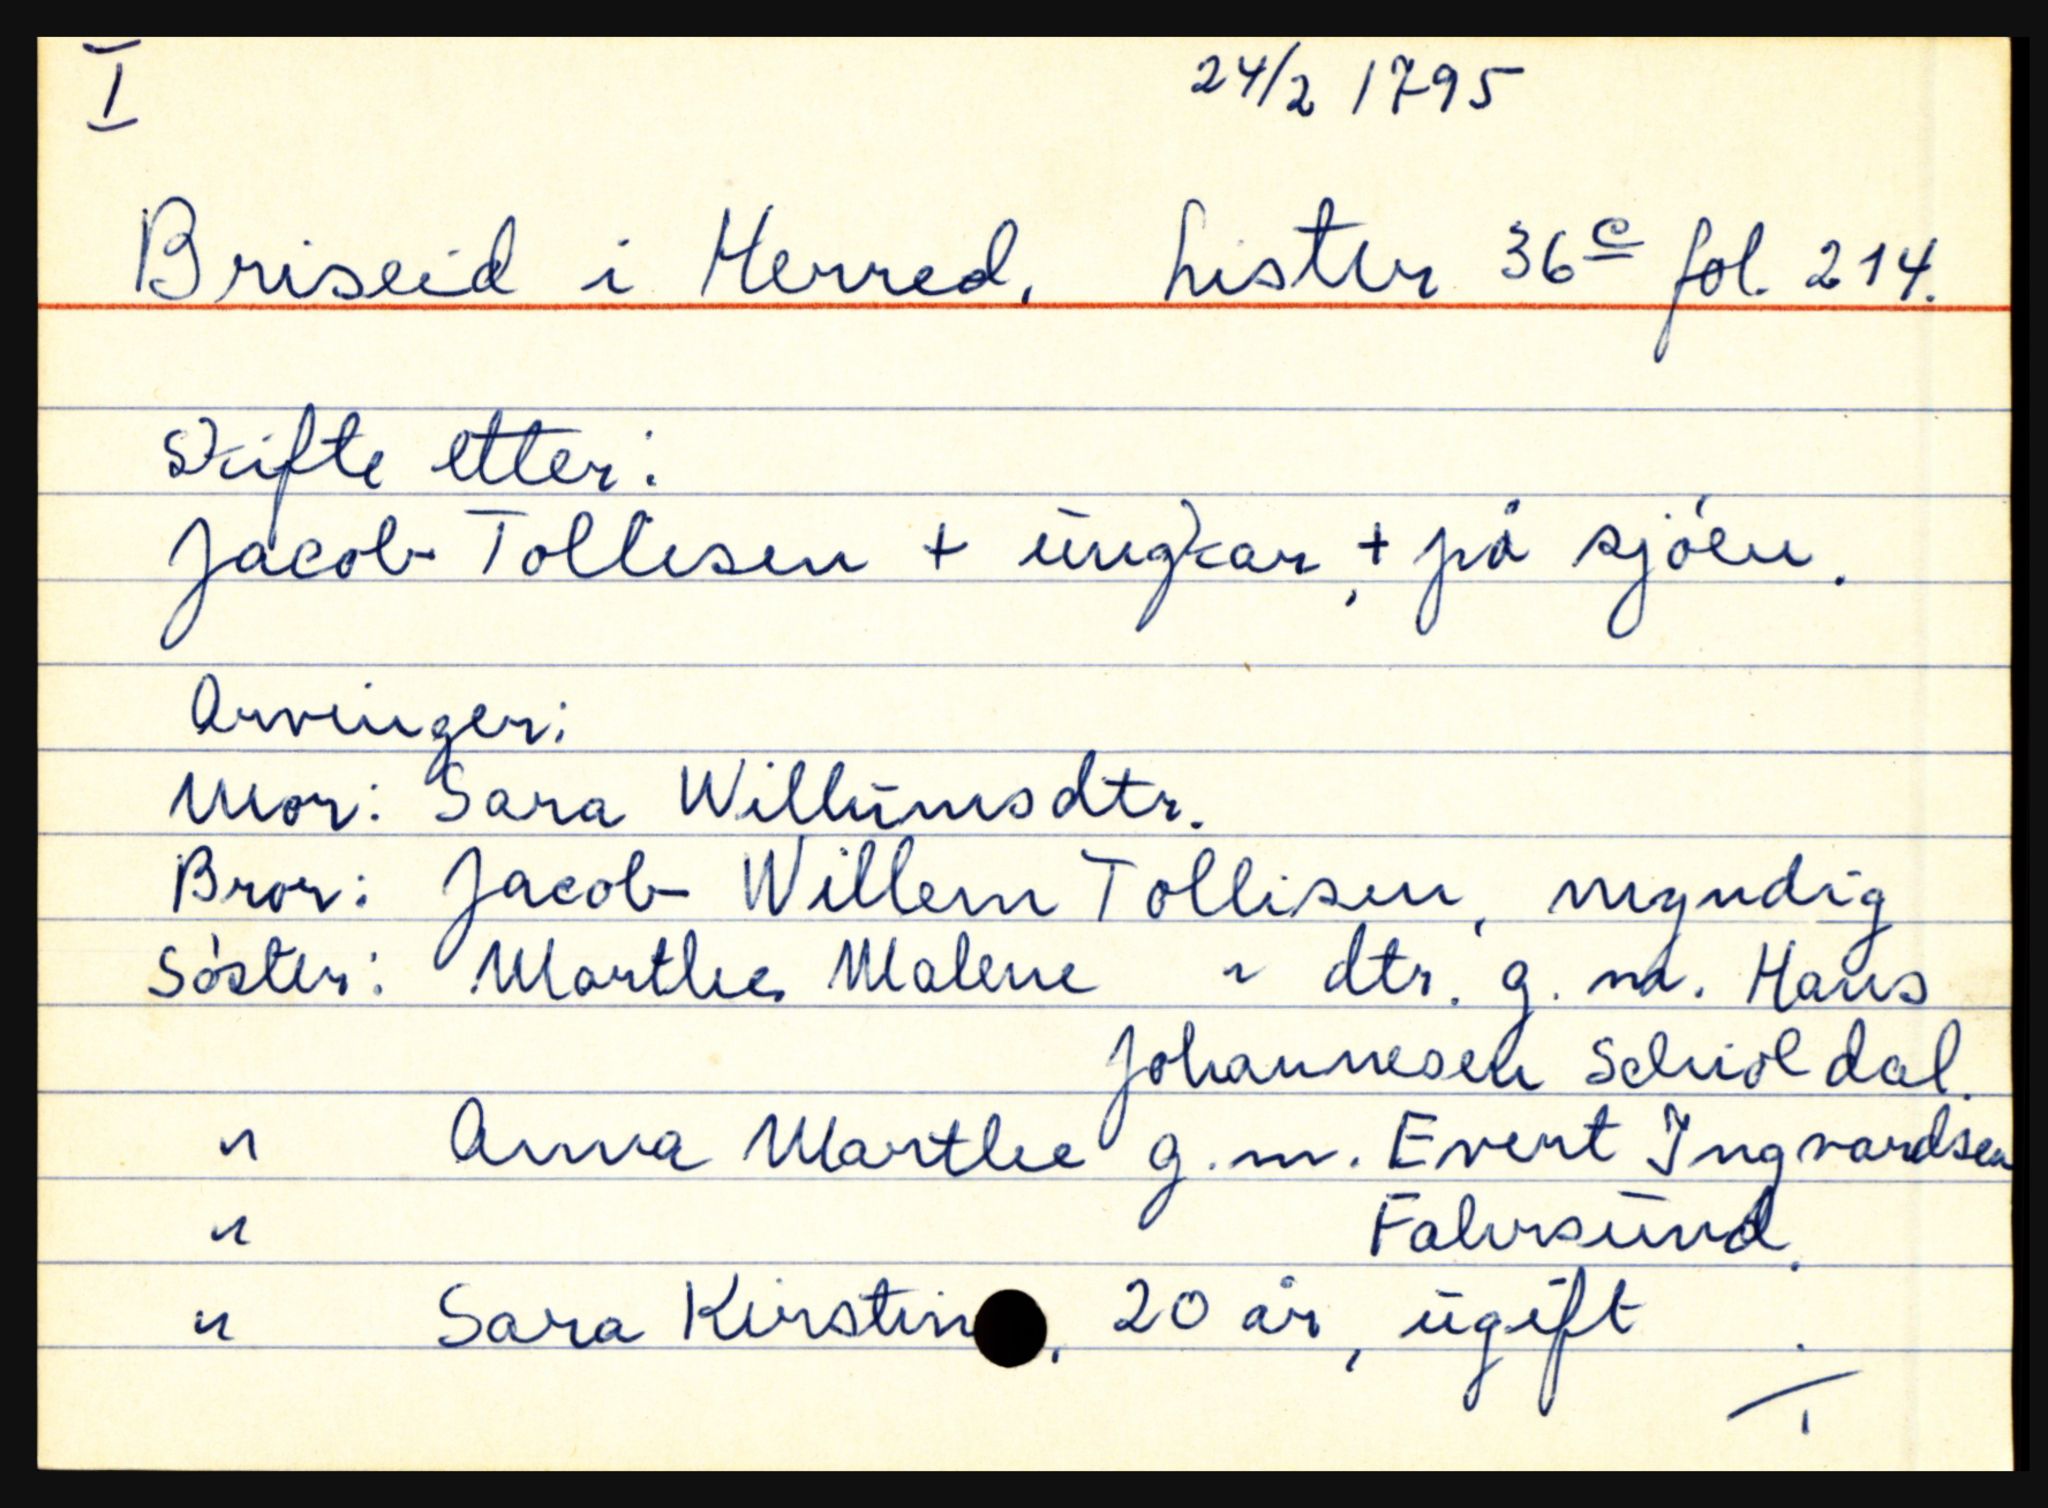 I 24/2 1795
Briseid i Herred. Lister 36c fol. 214.
Skifte etter:
Jacob Tollesen + ungkar, + på sjóen.
Arvinger:
Mor: Sara Willumsdtr.
Bror: Jacob Willem Tollisen, myndig
Sóster: Marthe Malene " dtr. g. m. Hans
Johannesen Schiöldal.
" Anna Marthe g. m. Evert Ingvardsen
" Fahrsund.
" Sara Kirstin, 20 år, ugift